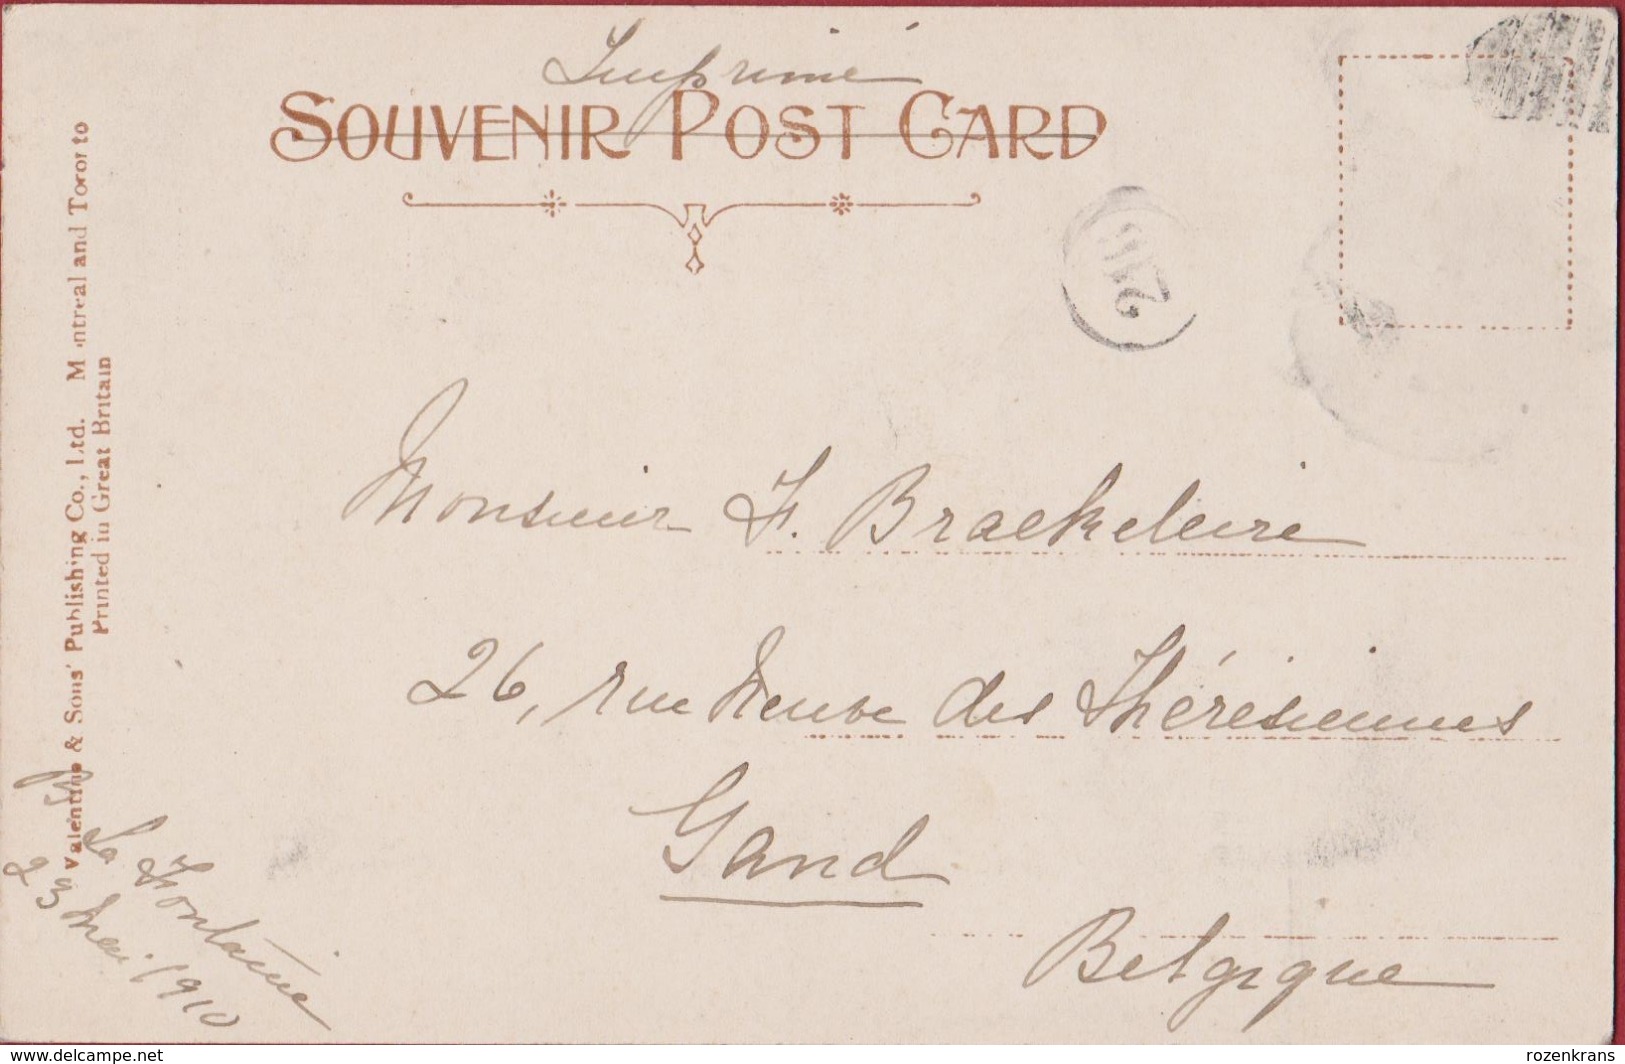 Imprimé
SOUVENIR POST CARD
216
Monsieur F. Braekeleire
26, rue Neuve des Thérésiennes
Gand
Belgique
La Fontaine
23 Mai 1910
Valentine & Sons' Publishing Co., Ltd. Montreal and Toronto
Printed in Great Britain
www.delcampe.net
rozenkrans